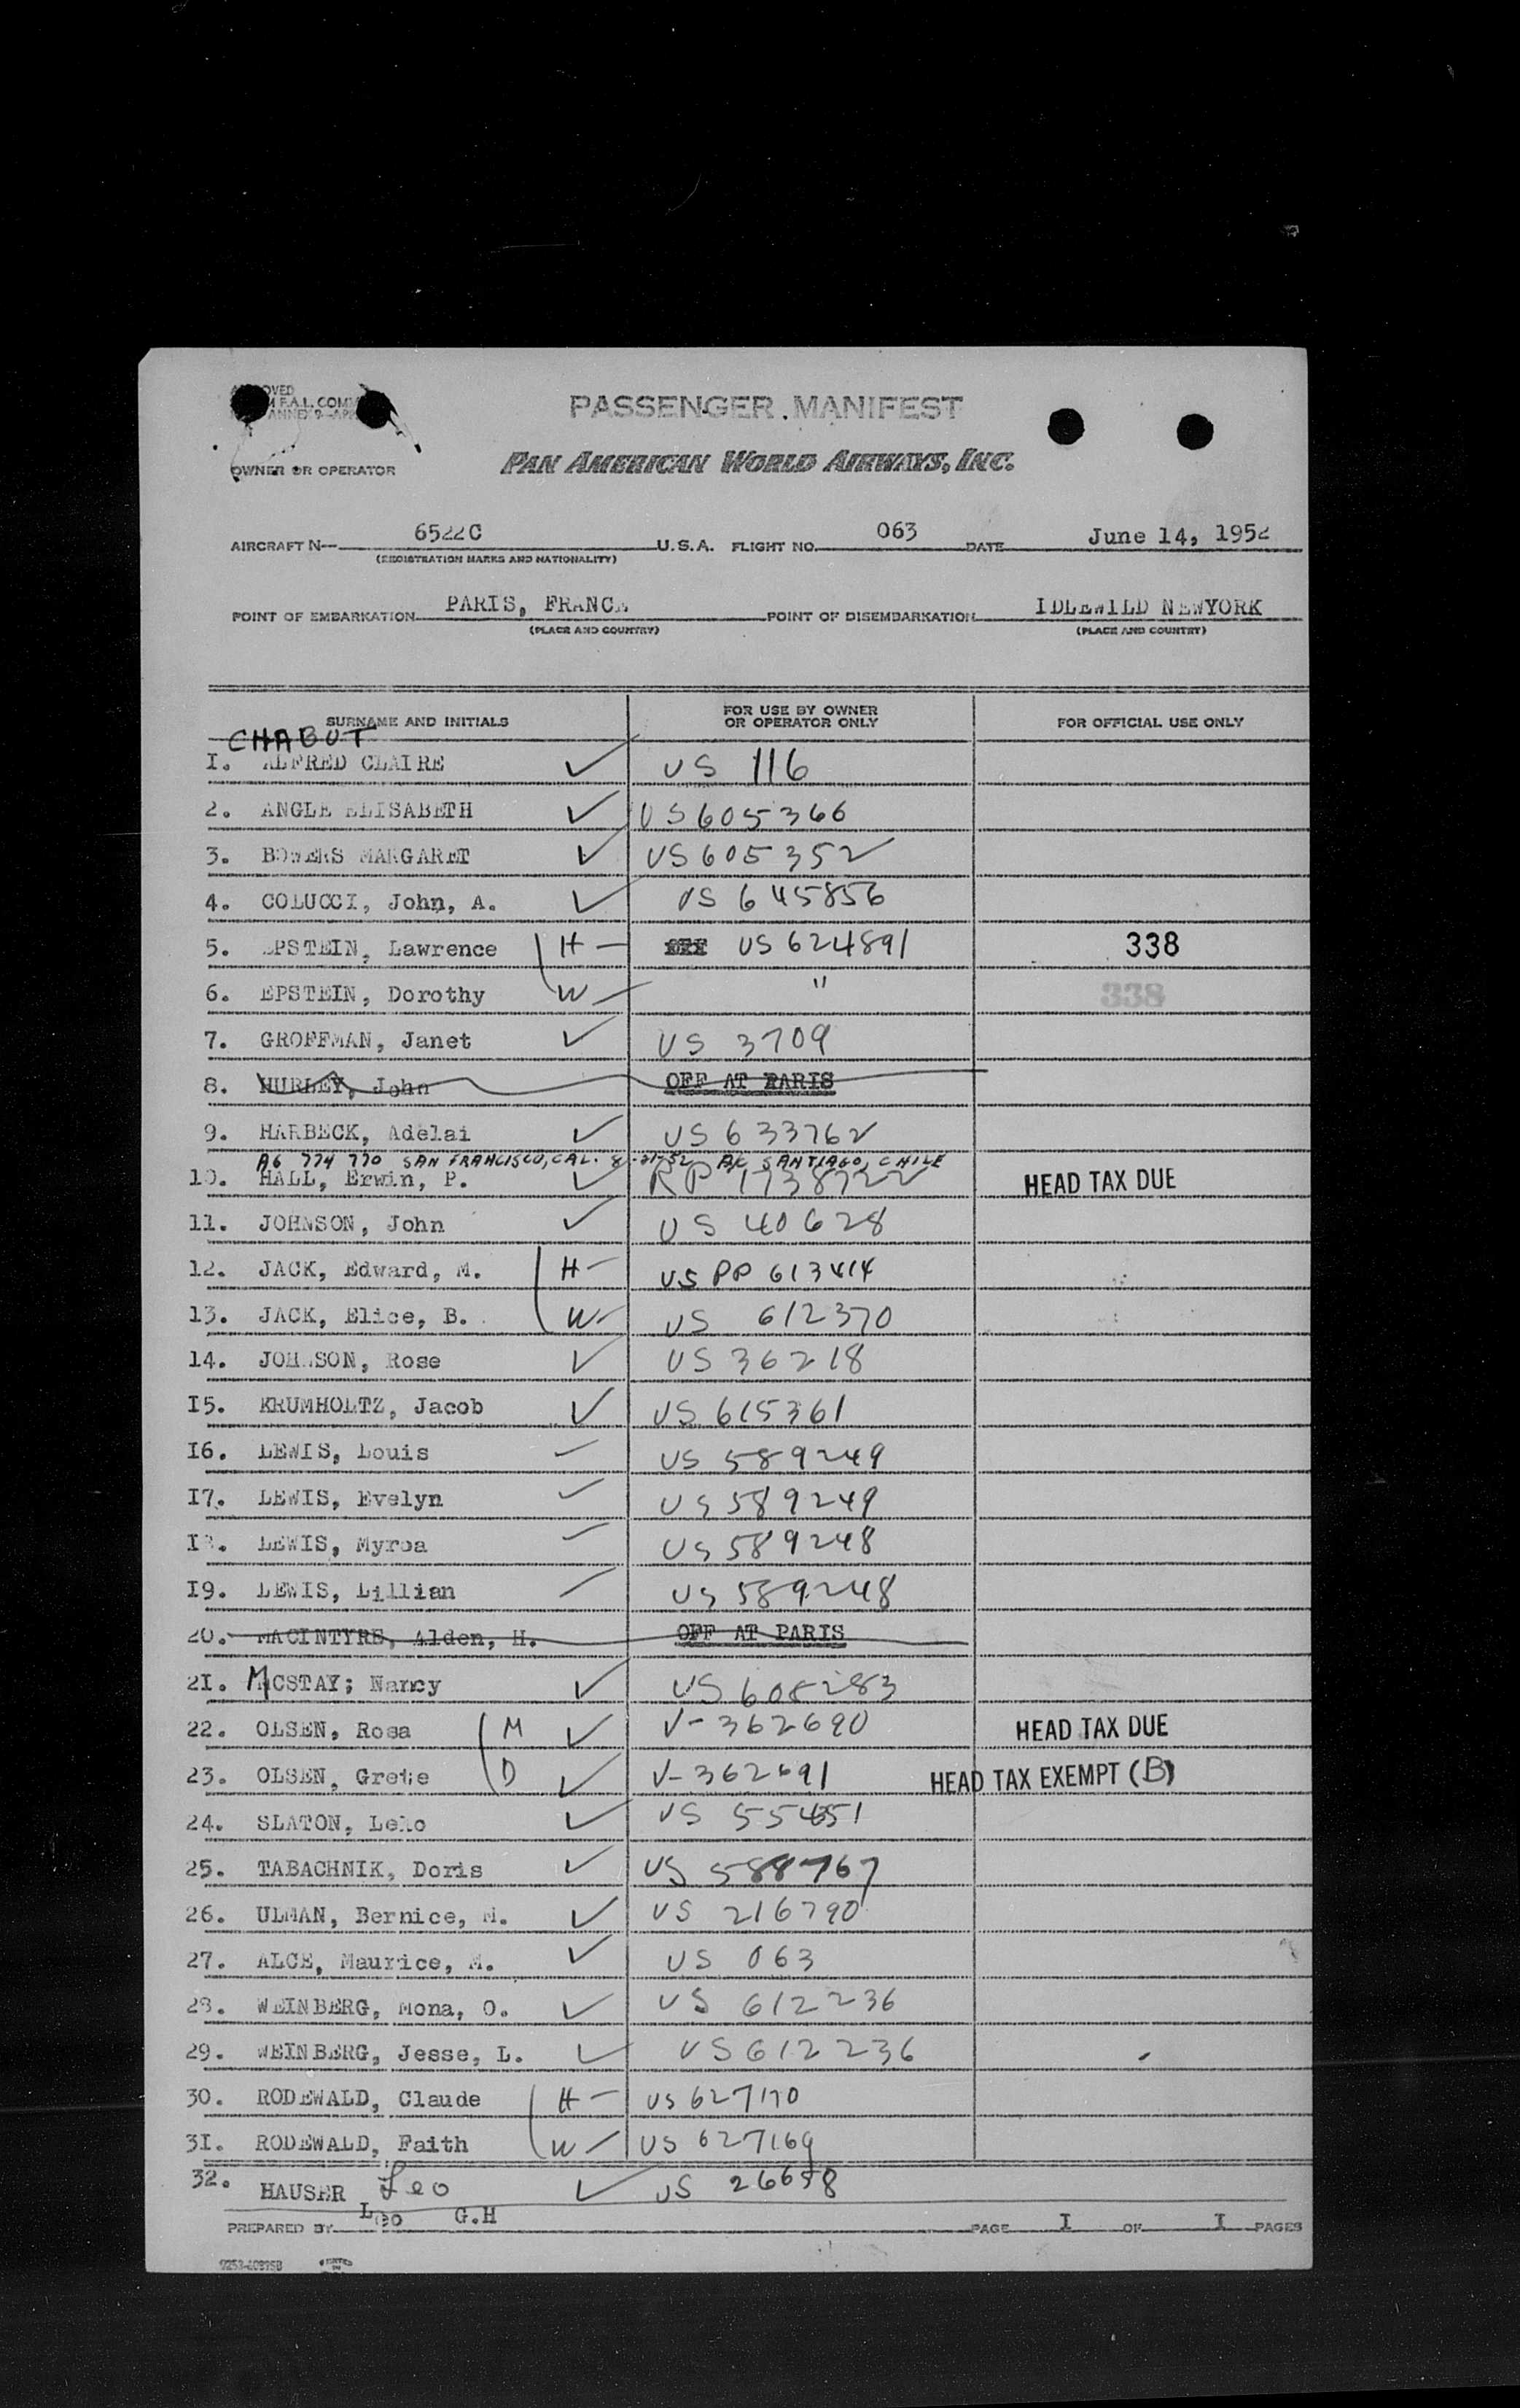 PASSENGER MANIFEST
OWNER OR OPERATOR PAN AMERICAN WORLD AIRWAYS, INC.
AIRCRAFT N— 6522C U.S.A. FLIGHT NO. 063 DATE June 14, 1952
(REGISTRATION MARKS AND NATIONALITY)
POINT OF EMBARKATION PARIS, FRANCE POINT OF DISEMBARKATION IDLEWILD NEWYORK
(PLACE AND COUNTRY) (PLACE AND COUNTRY)
SURNAME AND INITIALS FOR USE BY OWNER OR OPERATOR ONLY FOR OFFICIAL USE ONLY
CHABOT
1. ALFRED CLAIRE ✓ US 116
2. ANGLE ELISABETH ✓ US605366
3. BOWERS MARGARET ✓ US605352
4. COLUCCI, John, A. ✓ US 645856
5. EPSTEIN, Lawrence H — US 624891 338
6. EPSTEIN, Dorothy W — " 338
7. GROFFMAN, Janet ✓ US 3709
8. HURLEY, John OFF AT PARIS
9. HARBECK, Adelai ✓ US 633762
A6 774 770 SAN FRANCISCO, CAL. SANTIAGO, CHILE
10. HALL, Erwin, P. ✓ RP 1738722 HEAD TAX DUE
11. JOHNSON, John ✓ US 40628
12. JACK, Edward, M. H — US PP 613414
13. JACK, Elice, B. W — US 612370
14. JOHNSON, Rose ✓ US 36218
15. KRUMHOLTZ, Jacob ✓ US 615361
16. LEWIS, Louis US 589249
17. LEWIS, Evelyn US 589249
18. LEWIS, Myrna US 589248
19. LEWIS, Lillian US 589248
20. MACINTYRE, Alden, H. OFF AT PARIS
21. MCSTAY; Nancy ✓ US 605283
22. OLSEN, Rosa M ✓ V-362690 HEAD TAX DUE
23. OLSEN, Grete D ✓ V-362691 HEAD TAX EXEMPT (B)
24. SLATON, ✓ US
25. TABACHNIK, Doris ✓ US 588767
26. ULMAN, Bernice, M. ✓ US 216790
27. ALCE, Maurice, M. ✓ US 063
28. WEINBERG, Mona, O. ✓ US 612236
29. WEINBERG, Jesse, L. ✓ US612236
30. RODEWALD, Claude H — US 627170
31. RODEWALD, Faith W — US 627169
32. HAUSER Leo ✓ US 26658
PREPARED BY Leo G.H PAGE I OF I PAGES